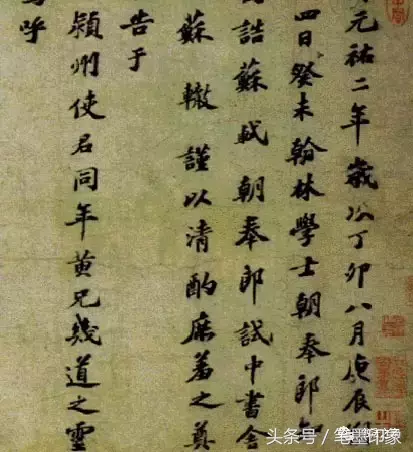 元祐二年歲次丁卯八月庚辰
四日癸未翰林學士朝奉郎知
誥蘇軾朝奉郎試中書舍
蘇轍謹以清酌庶羞之奠
告于
潁州使君同年黃兄幾道之靈
呼
头条号／笔墨印象